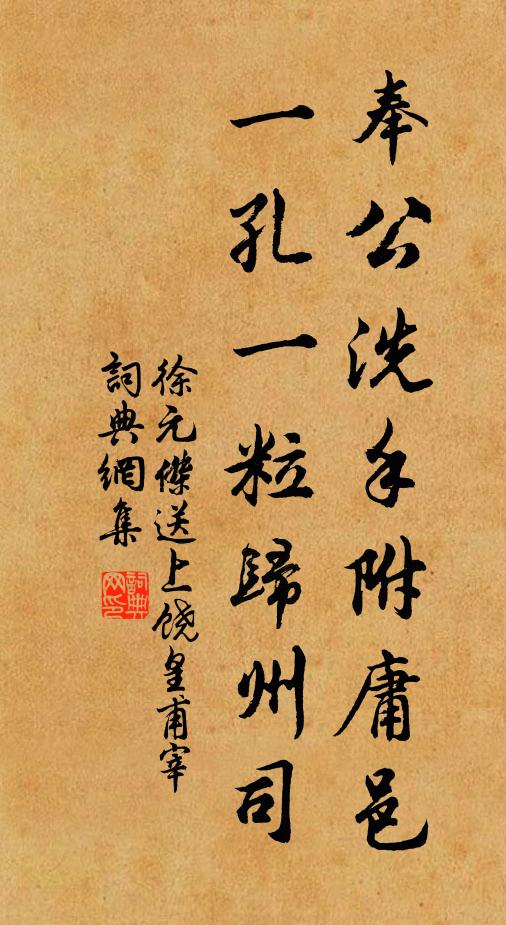 奉公洗手附庸邑
一孔一粒歸州司
徐元傑送上饒皇甫宰
詞典網集
詞典网印